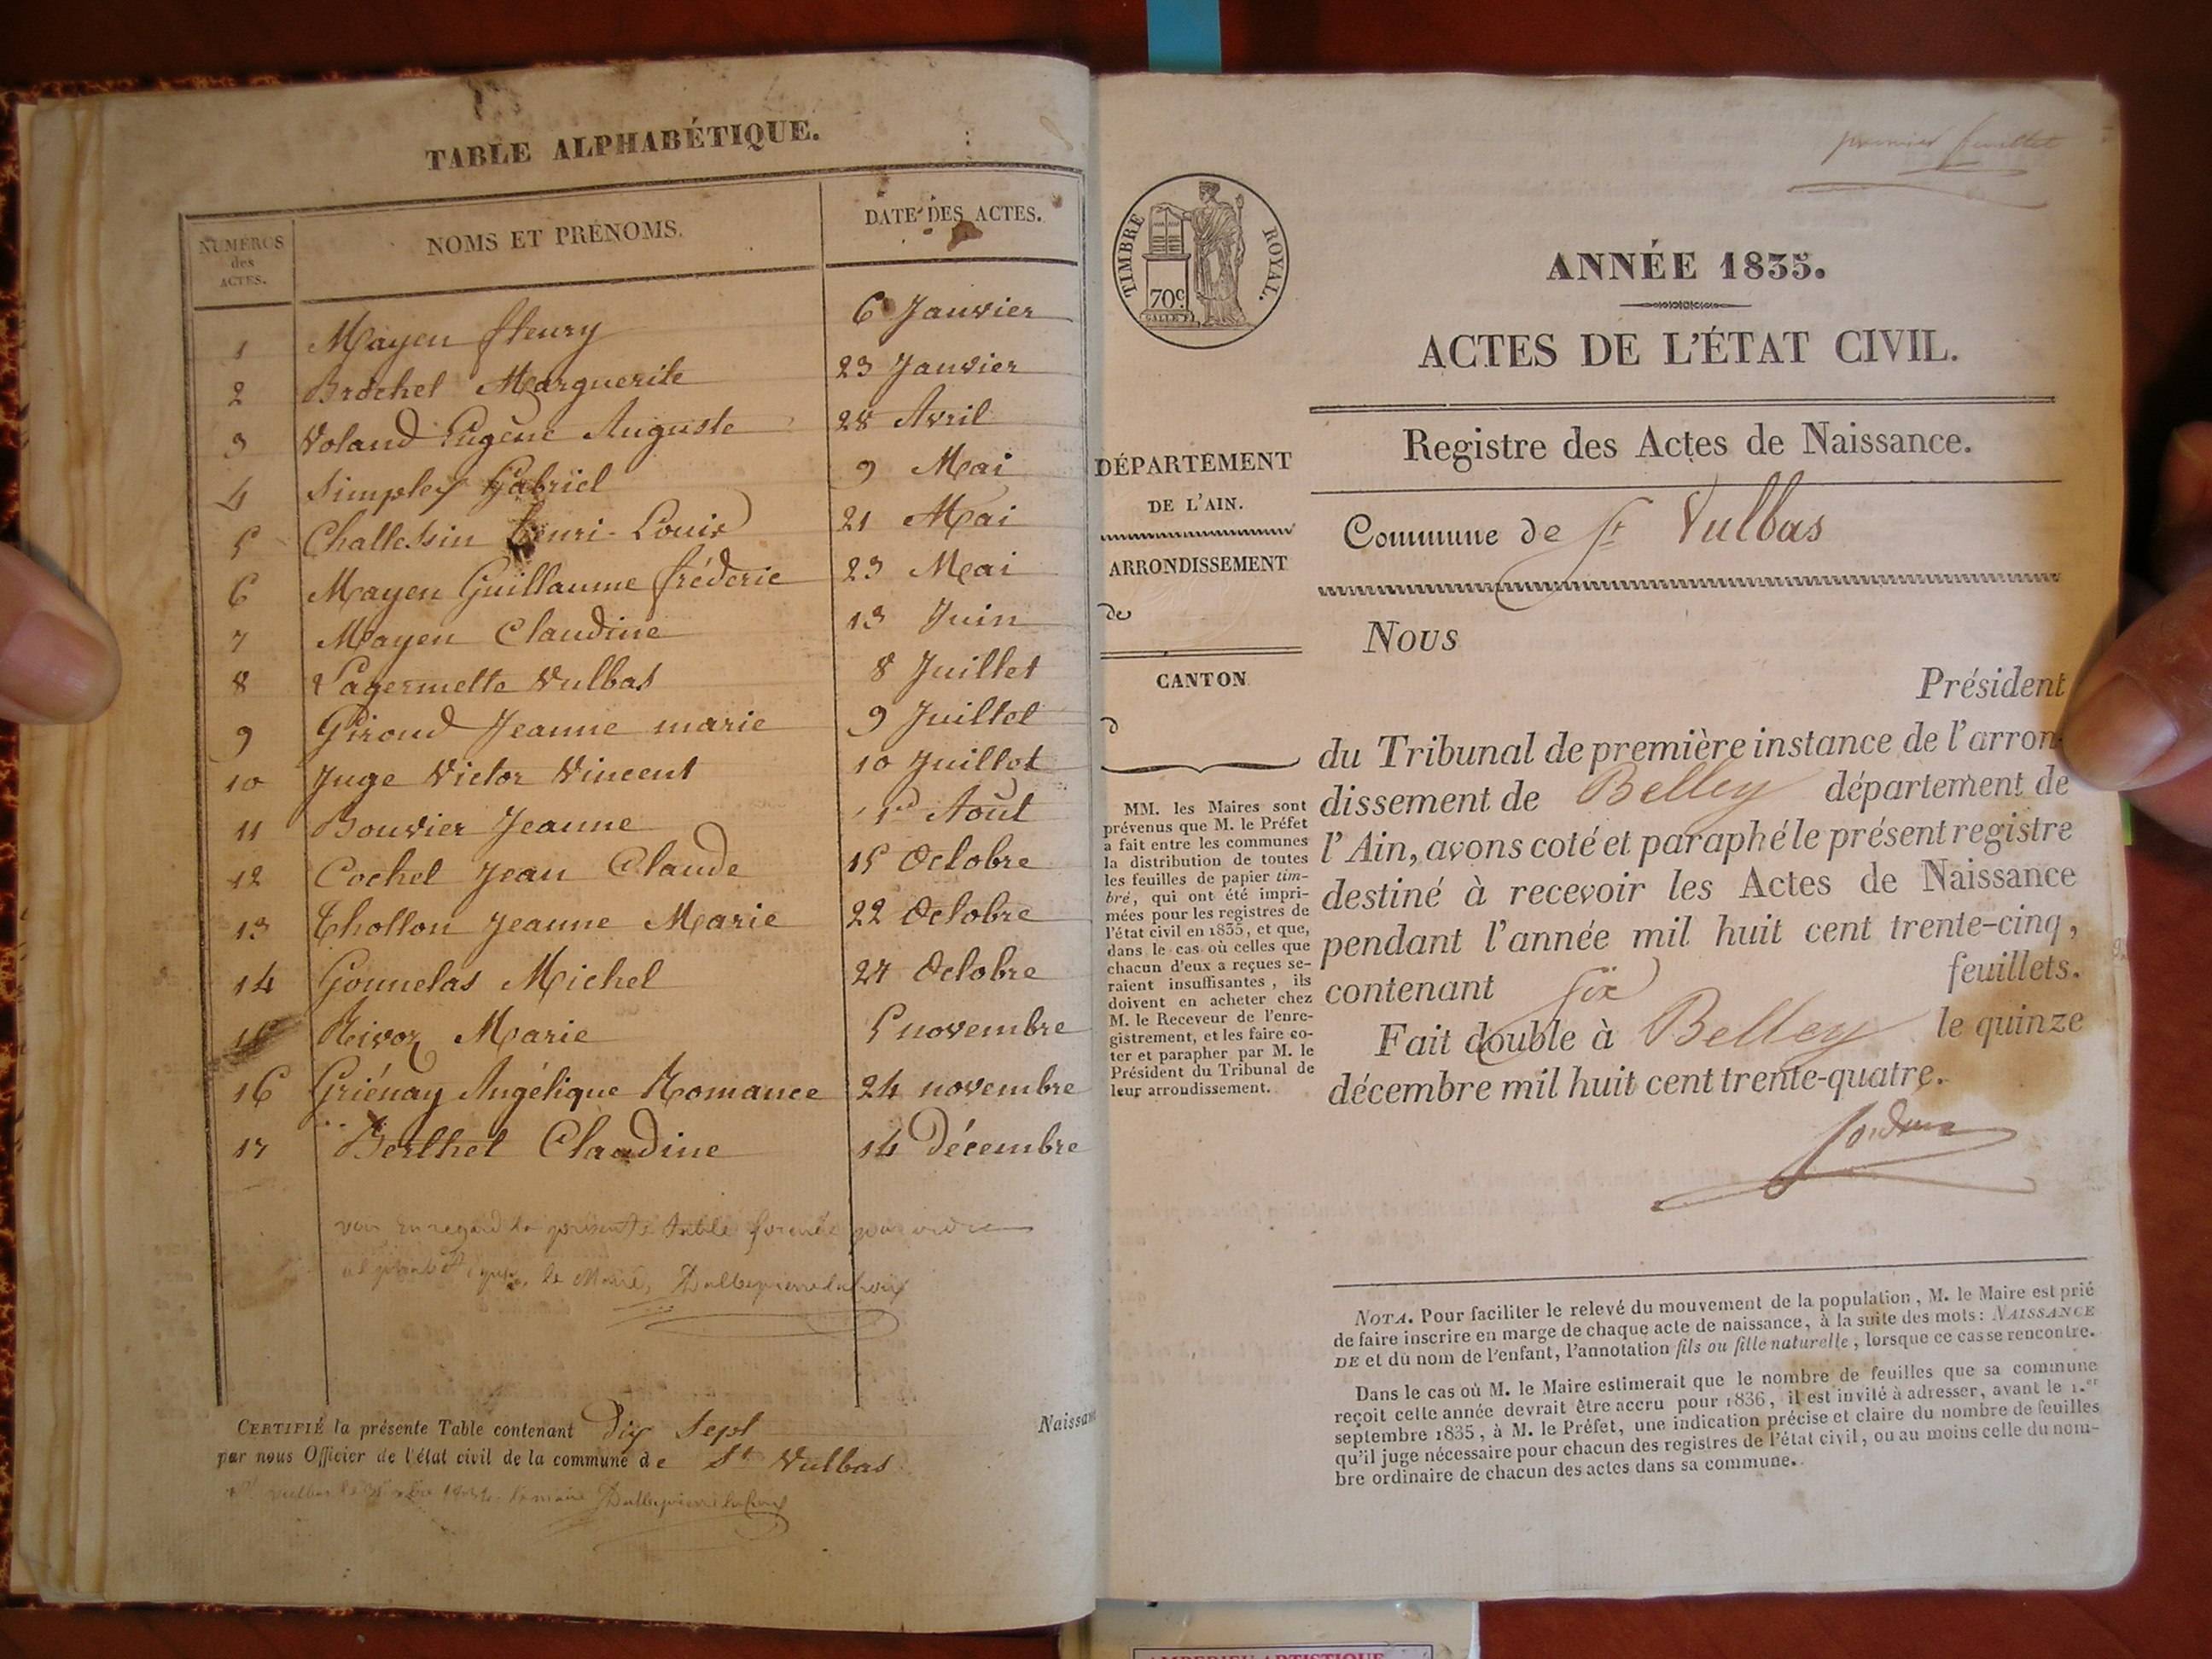 TABLE ALPHABÉTIQUE.
NUMÉROS
des
ACTES.
NOMS ET PRÉNOMS.
DATE DES ACTES.
1 Mayen fleury 6 Janvier
2 Brochet Marguerite 23 Janvier
3 Voland Eugène Auguste 28 Avril
4 Simplex Gabriel 9 Mai
5 Challessin henri-Louis 21 Mai
6 Mayen Guillaume fréderic 23 Mai
7 Mayen Claudine 13 Juin
8 Pagermette Vulbas 8 Juillet
9 Giroud Jeanne marie 9 Juillet
10 Juge Victor Vincent 10 Juillet
11 Bouvier Jeanne 1er Aout
12 Cochet Jean Claude 15 Octobre
13 Thollon Jeanne Marie 22 Octobre
14 Gonnelas Michel 27 Octobre
15 Rivoz Marie 5 novembre
16 Griénay Angélique Romance 24 novembre
17 Berthet Claudine 14 Décembre
la présente table formée par ordre
le Maire,
CERTIFIÉ la présente Table contenant dix sept Naissan
par nous Officier de l'état civil de la commune de St Vulbas
premier feuillet
TIMBRE ROYAL.
70c
ANNÉE 1835.
ACTES DE L'ÉTAT CIVIL.
Registre des Actes de Naissance.
Commune de St Vulbas
DÉPARTEMENT
DE L'AIN.
ARRONDISSEMENT
de
CANTON
d
MM. les Maires sont
prévenus que M. le Préfet
a fait entre les communes
la distribution de toutes
les feuilles de papier tim-
bré, qui ont été impri-
mées pour les registres de
l'état civil en 1835, et que,
dans le cas où celles que
chacun d'eux a reçues se-
raient insuffisantes, ils
doivent en acheter chez
M. le Receveur de l'enre-
gistrement, et les faire co-
ter et parapher par M. le
Président du Tribunal de
leur arrondissement.
Nous
Président
du Tribunal de première instance de l'arron-
dissement de Belley département de
l'Ain, avons coté et paraphé le présent registre
destiné à recevoir les Actes de Naissance
pendant l'année mil huit cent trente-cinq,
contenant six feuillets.
Fait double à Belley le quinze
décembre mil huit cent trente-quatre.
NOTA. Pour faciliter le relevé du mouvement de la population, M. le Maire est prié
de faire inscrire en marge de chaque acte de naissance, à la suite des mots: NAISSANCE
DE et du nom de l'enfant, l'annotation fils ou fille naturelle, lorsque ce cas se rencontre.
Dans le cas où M. le Maire estimerait que le nombre de feuilles que sa commune
reçoit cette année devrait être accru pour 1836, il est invité à adresser, avant le 1.er
septembre 1835, à M. le Préfet, une indication précise et claire du nombre de feuilles
qu'il juge nécessaire pour chacun des registres de l'état civil, ou au moins celle du nom-
bre ordinaire de chacun des actes dans sa commune.